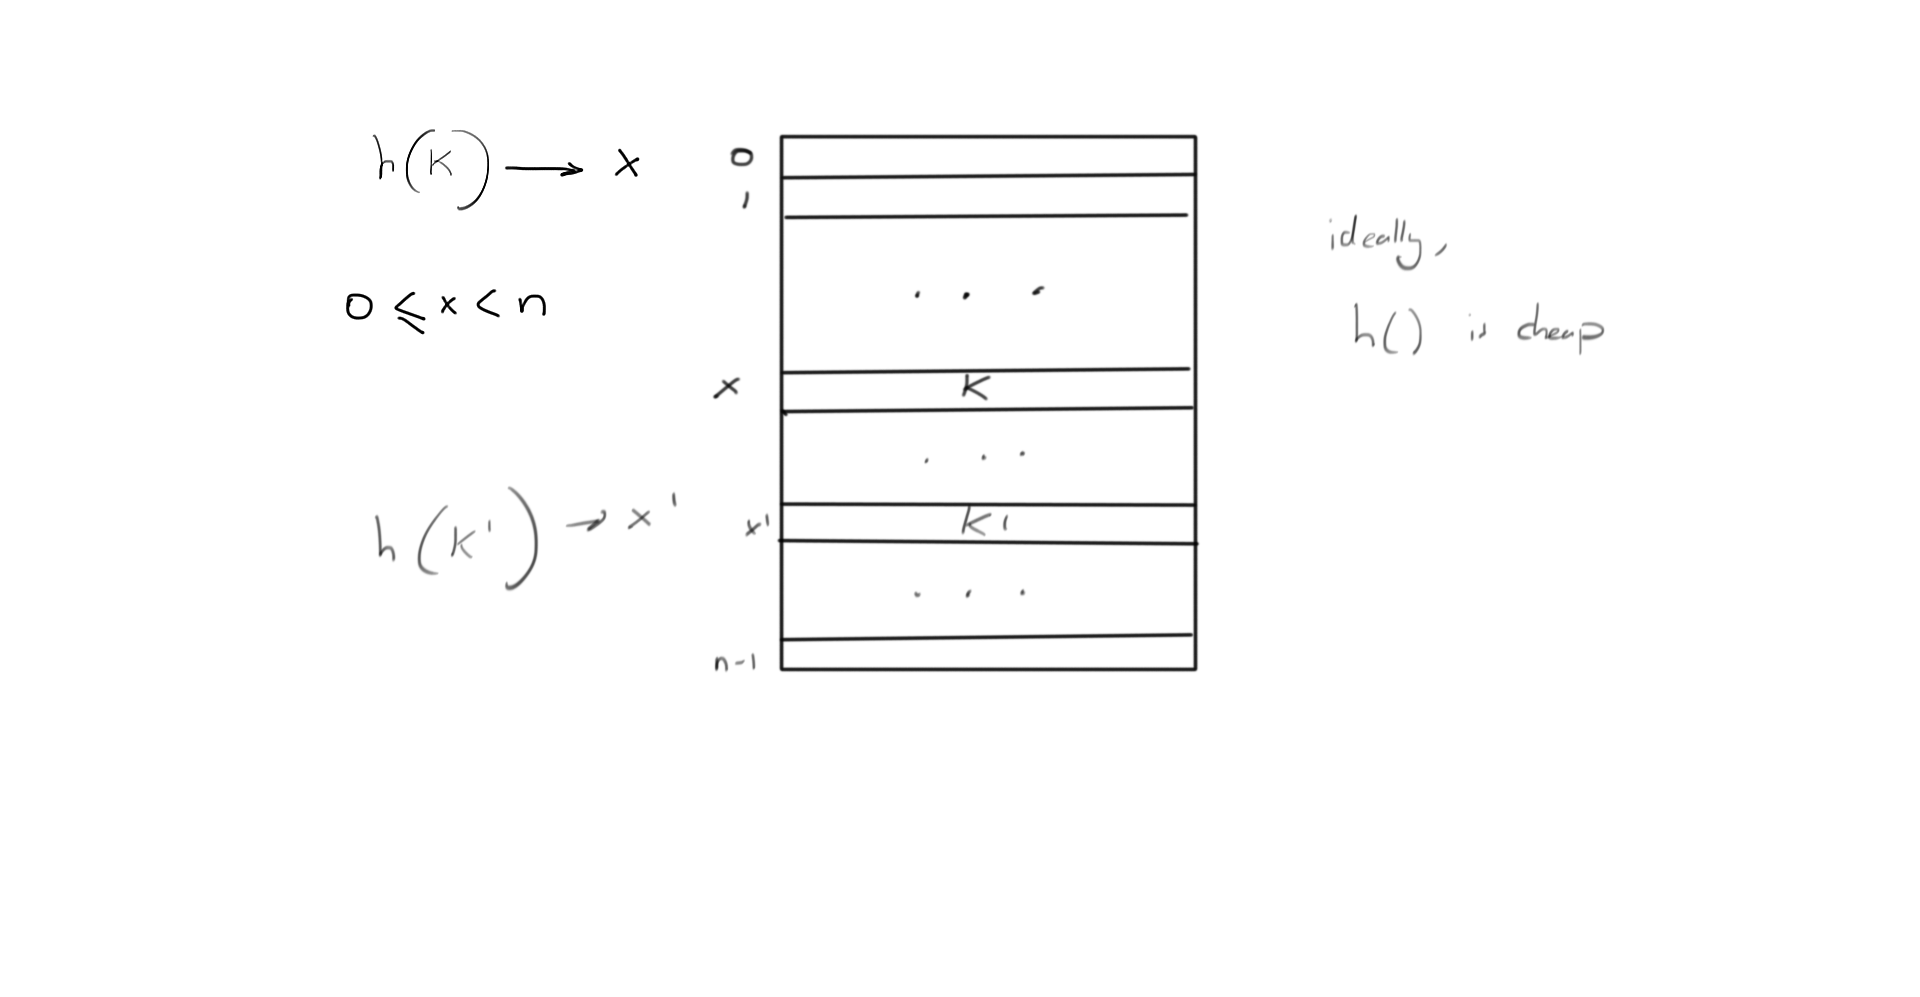 h(K) → x
0 ≤ x < n
h(K') → x'
0
1
. . .
x K
. . .
x' K'
. . .
n-1
ideally,
h() is cheap